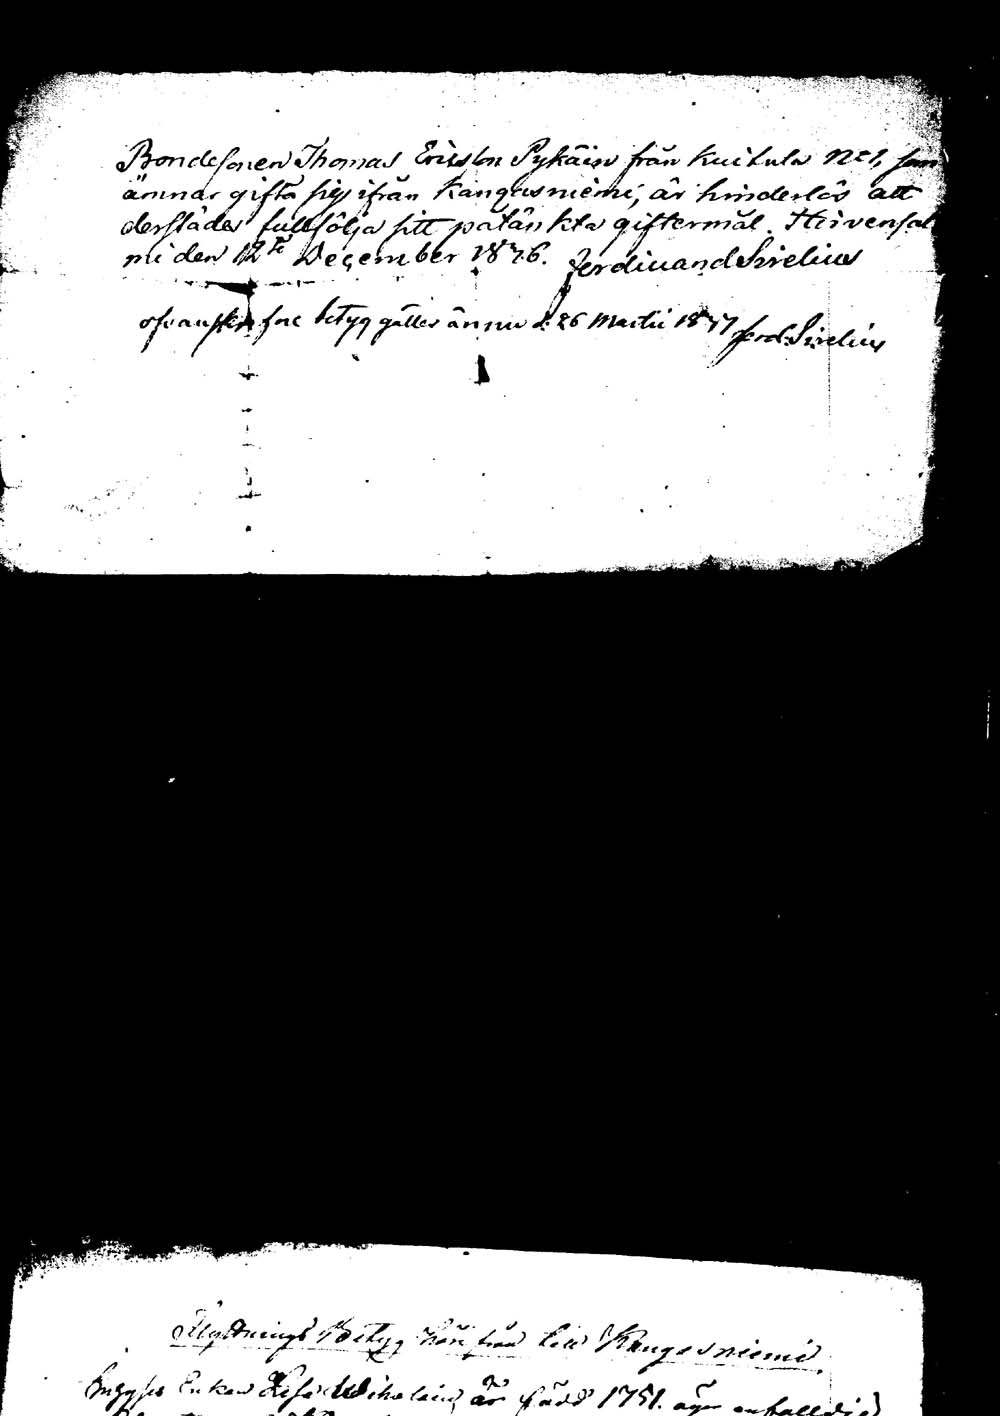 Bondesonen Thomas Ericsson Pykäin från Kuitula No 1, som
ämnar gifta sig ifrån Kangasniemi, är hinderlös att
derstädes fullfölja sitt påtänkta giftermål. Hirvensal
mi den 12te December 1876. Ferdinand Sirelius
ofvanskrifne betyg gäller ännu d. 26 Martii 1877 Ferd. Sirelius
Flyttnings Betyg härifrån till Kangasniemi
Enkan Lisa är född 1751. äger